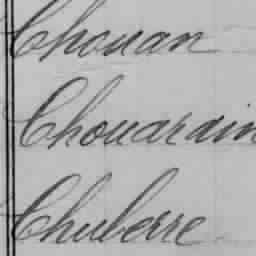 Chouan
Chouardin
Chuberre